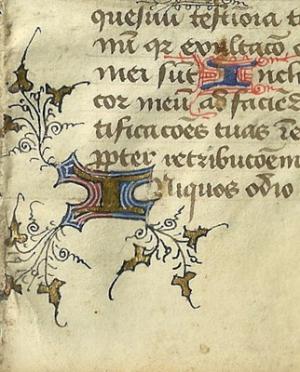 quesiui testiōia t
nū qr exultac̄o
mei sūt Incli
cor meū ad faciēd
tificac̄oēs tuas ī e
ꝓpter retribuc̄oēm
INiquos odio